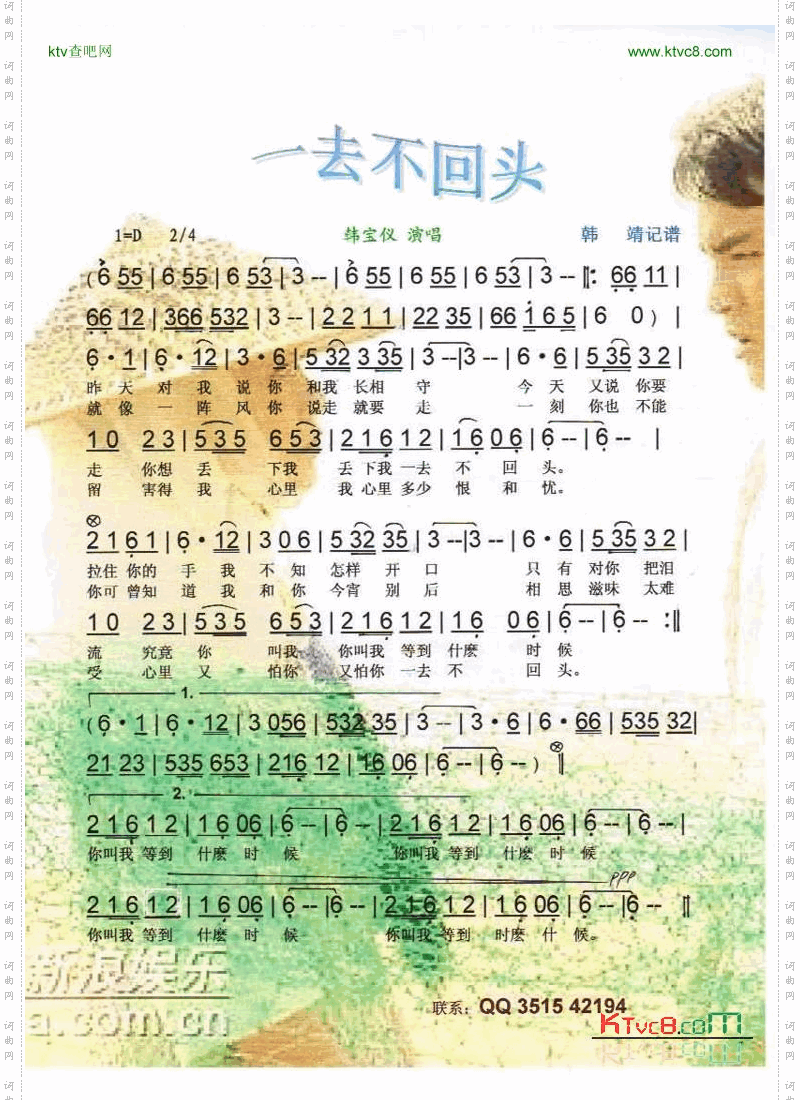 ktv查吧网 www.ktvc8.com
一去不回头
1=D 2/4 韩宝仪 演唱 韩 靖记谱
( 6 55 | 6 55 | 6 53 | 3 -- | 6 55 | 6 55 | 6 53 | 3 -- ‖: 66 11 |
66 12 | 366 532 | 3 -- | 2 2 1 1 | 22 35 | 66 1 6 5 | 6 0 ) |
6 · 1 | 6 · 12 | 3 · 6 | 5 32 3 35 | 3 -- | 3 -- | 6 · 6 | 5 35 3 2 |
昨 天 对 我 说 你 和我 长相 守 今 天 又说 你要
就 像 一 阵 风 你 说走 就要 走 一 刻 你也 不能
1 0 2 3 | 5 3 5 6 5 3 | 2 1 6 1 2 | 1 6 0 6 | 6 -- | 6 -- |
走 你想 丢 下我 丢 下我 一去 不 回 头。
留 害得 我 心里 我 心里 多少 恨 和 忧。
2 1 6 1 | 6 · 12 | 3 0 6 | 5 32 35 | 3 -- | 3 -- | 6 · 6 | 5 35 3 2 |
拉住 你的 手 我 不 知 怎样 开 口 只 有 对你 把泪
你可 曾知 道 我 和 你 今宵 别 后 相 思 滋味 太难
1 0 2 3 | 5 3 5 6 5 3 | 2 1 6 1 2 | 1 6 0 6 | 6 -- | 6 -- :‖
流 究竟 你 叫我 你叫我 等到 什麽 时 候
受 心里 又 怕你 又怕你 一去 不 回 头。
1.
( 6 · 1 | 6 · 12 | 3 056 | 532 35 | 3 -- | 3 · 6 | 6 · 66 | 535 32 |
21 23 | 535 653 | 216 12 | 16 06 | 6 -- | 6 -- ) ‖
2.
2 1 6 1 2 | 1 6 06 | 6 -- | 6 -- | 2 1 6 1 2 | 1 6 06 | 6 -- | 6 -- |
你叫我 等到 什麽 时 候 你叫我 等到 什麽 时 候
ppp
2 1 6 12 | 1 6 06 | 6 -- | 6 -- | 2 1 6 12 | 1 6 06 | 6 -- | 6 -- ‖
你叫我 等到 什麽 时 候 你叫我 等到 时麽 什 候。
新浪娱乐
a.com.cn
联系：QQ 3515 42194
KTvc8.com
词曲网